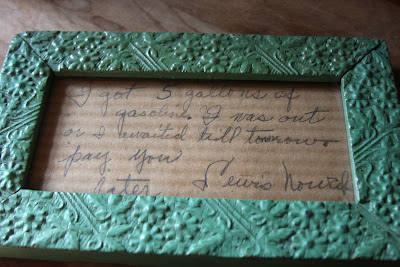 I got 5 gallons of
gasoline. I was out
or I waited till tomorrow
pay you
later Lewis Novak